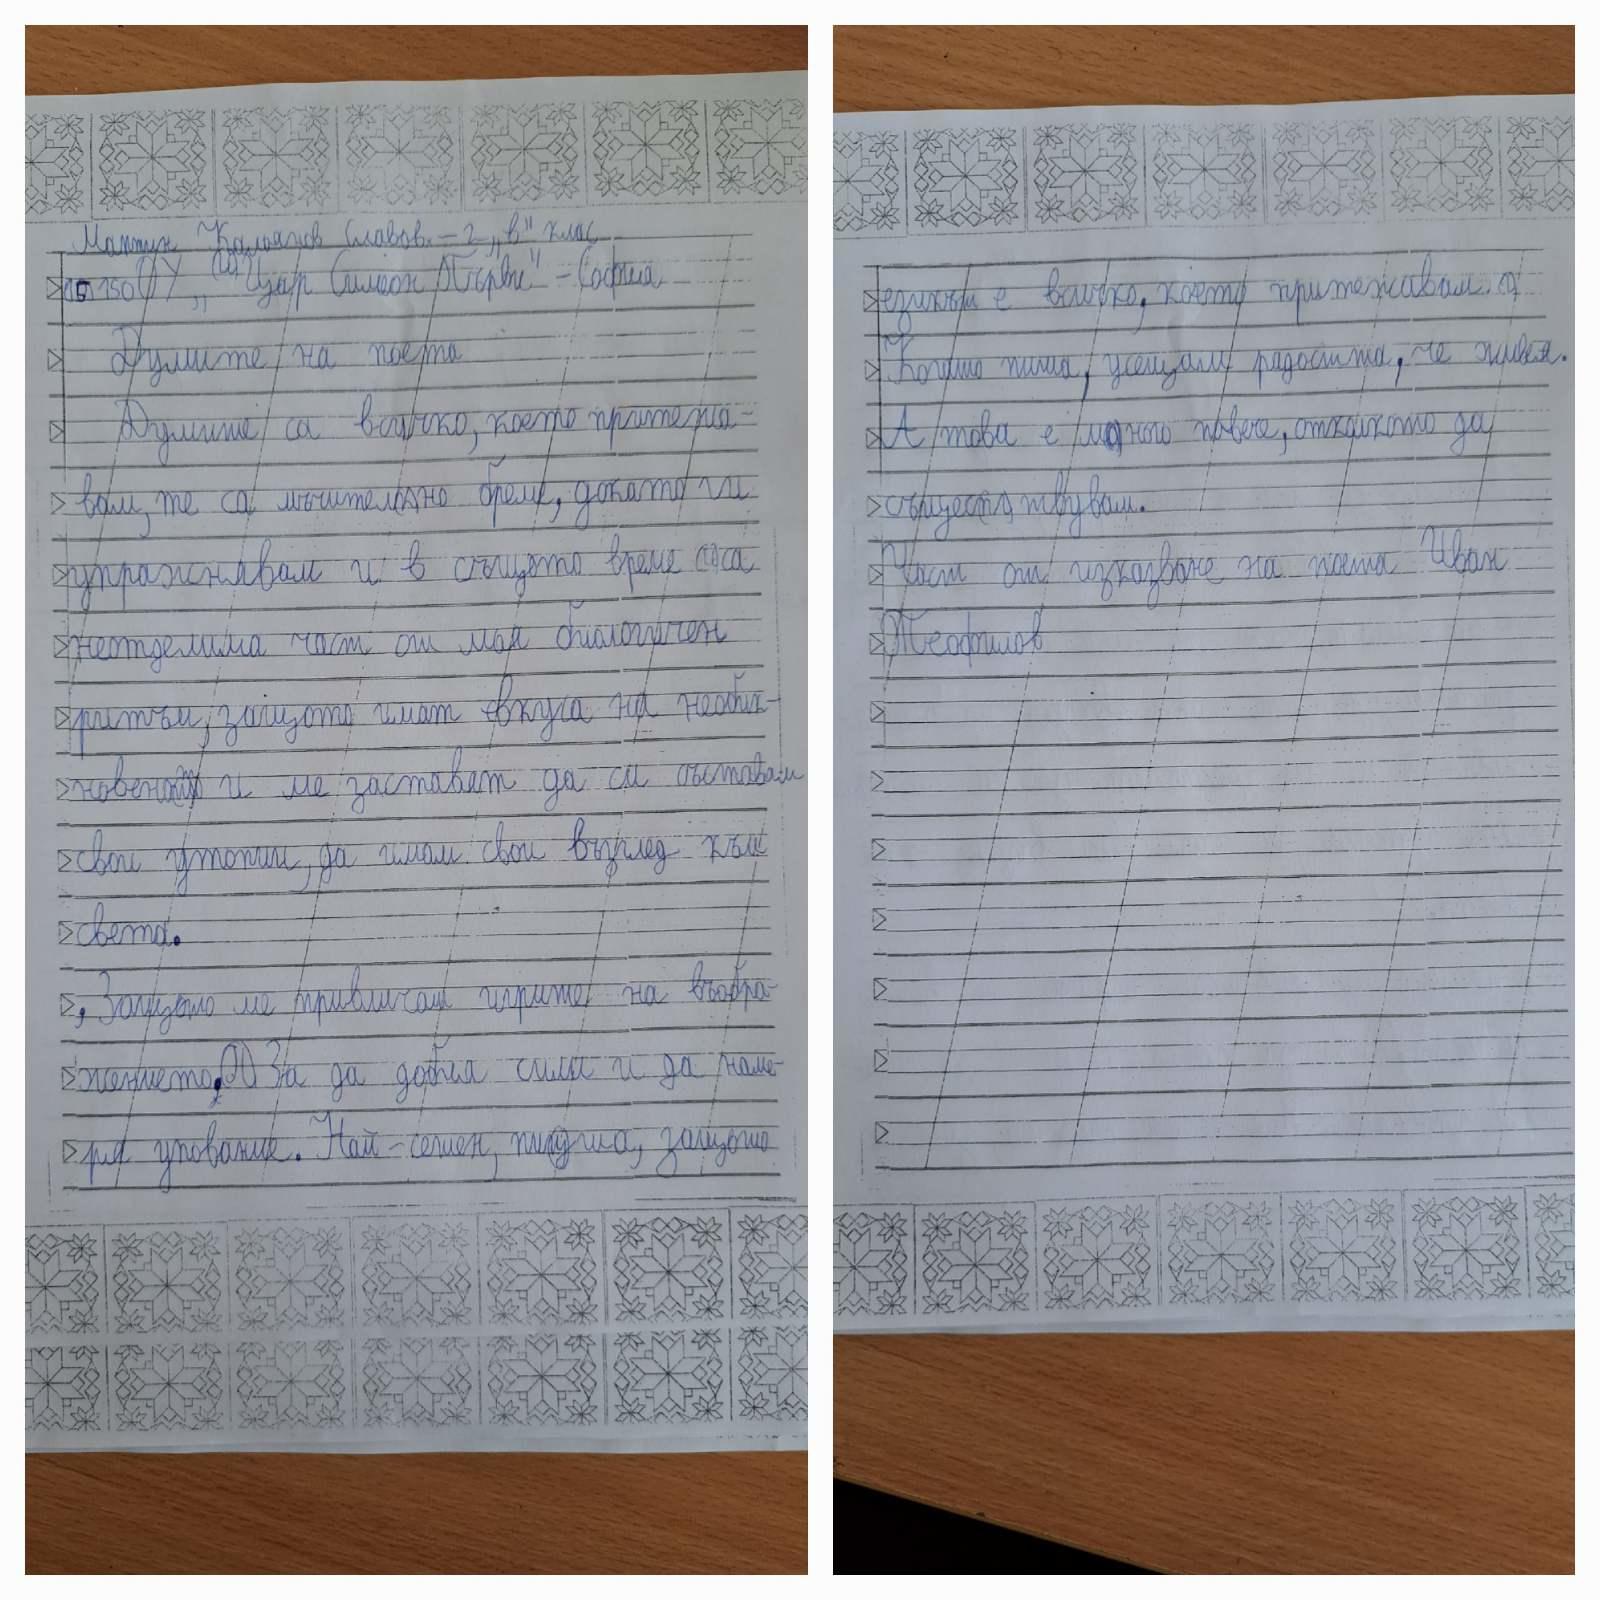 Мартин Калоянов Славов. - 2 „в“ клас
150 ОУ „Цар Симеон Първи“ - София
Думите на поета
Думите са всичко, което притежа-
вам, те са мъчително бреме, докато ги
упражнявам и в същото време са
неотделима част от моя биологичен
ритъм, защото имат вкуса на необик-
новено и ме заставят да си съставям
свои утопии, да имам свои възглед към
света.
, Защото ме привличат игрите на въобра-
жението. За да добия сили и да наме-
ря упование. Най-сетен, пиша, защото
езикът е всичко, което притежавам.
Когато пиша, усещам радостта, че живея.
А това е много повече, отколкото да
съществувам.
Част от изказване на поета Иван
Теофилов